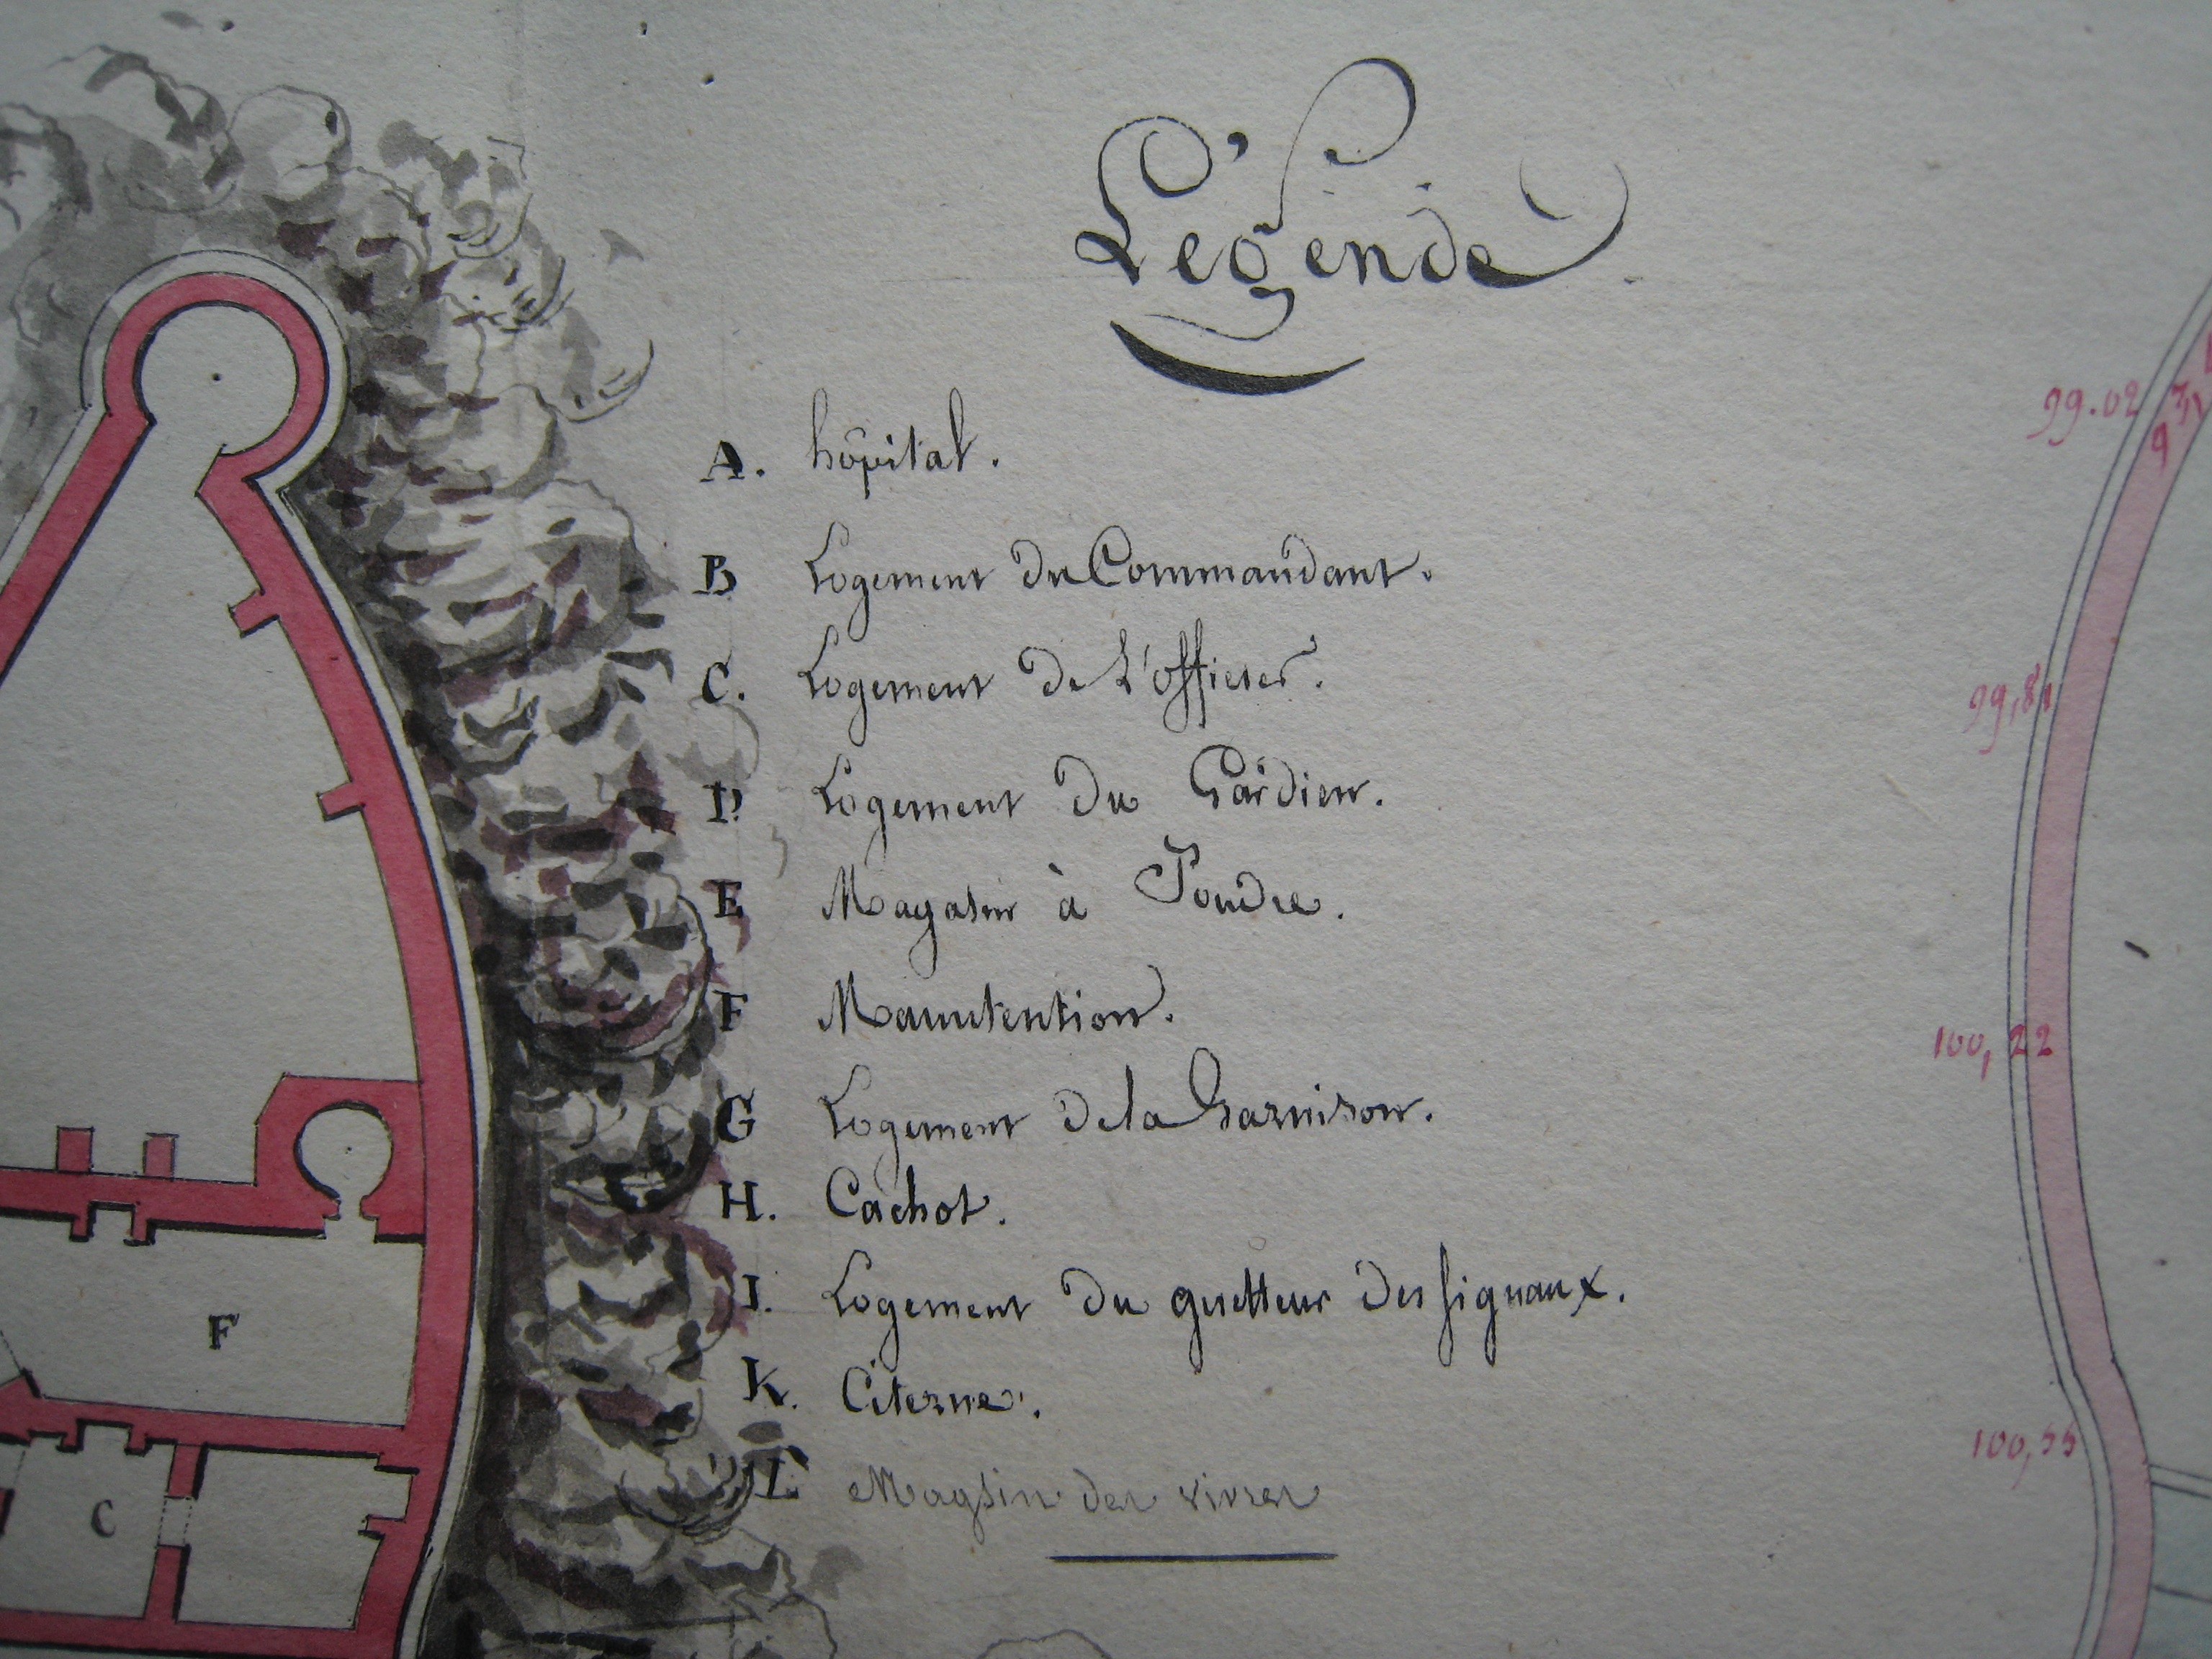 Légende
A. hôpital.
B Logement du Commandant.
C. Logement de L'officier.
D. Logement du Gardien.
E Magasin à Poudre.
F Manutention.
G Logement de la Garnison.
H. Cachot.
I. Logement du guetteur des signaux.
K. Citerne.
L Magsin des vivres
F
C
99.02
99,81
100,22
100,55